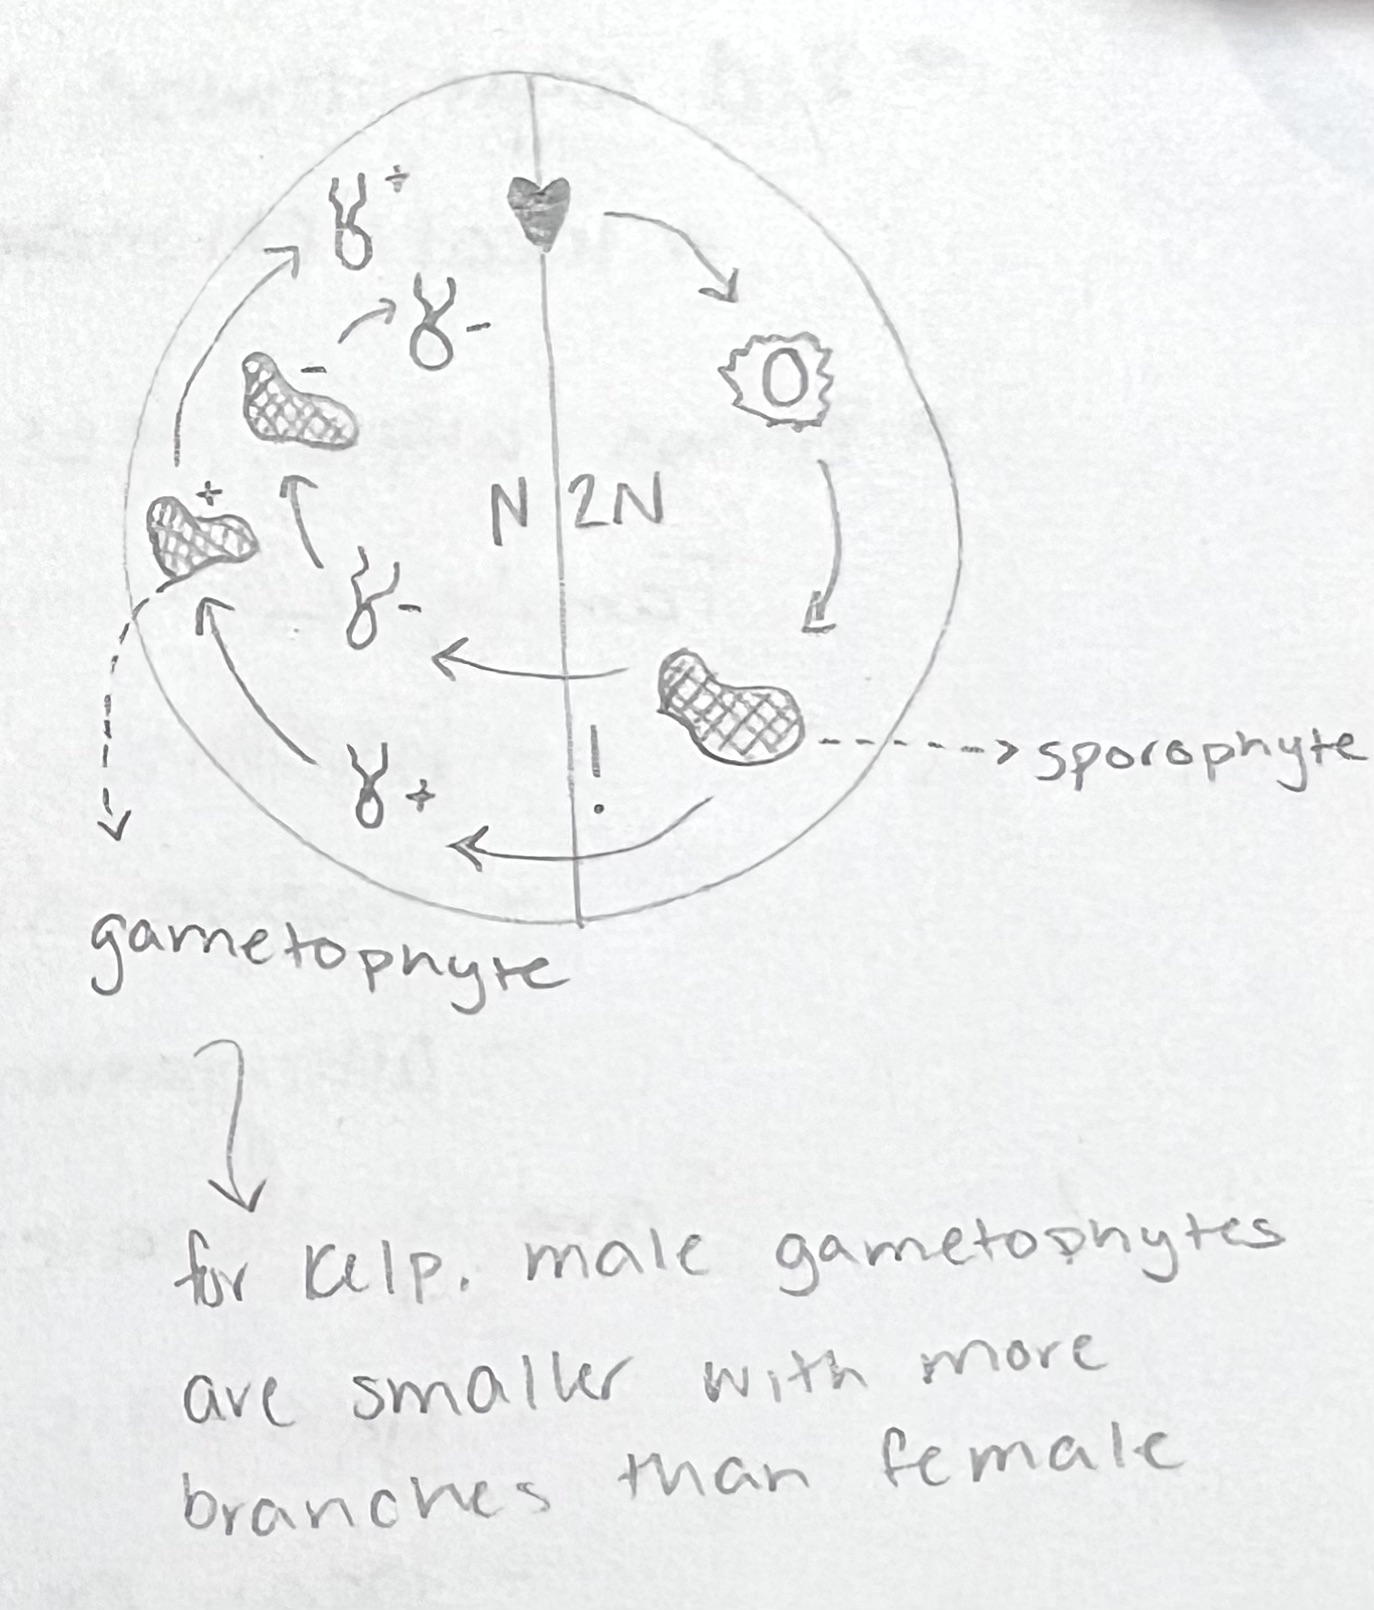 +
-
-
+
N 2N
-
+
!
sporophyte
gametophyte
for Kelp. male gametophytes
are smaller with more
branches than female